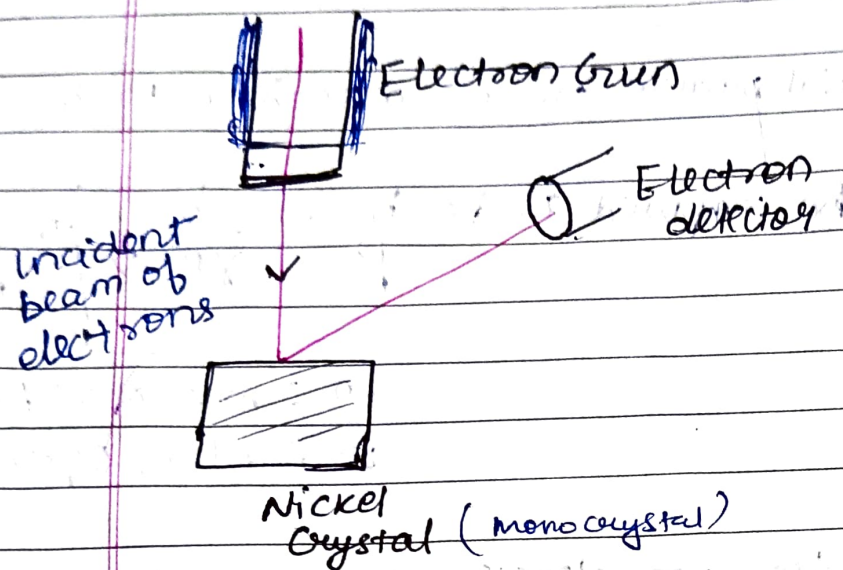 Electron Gun
Electron
detector
Incident
beam of
electrons
Nickel
Crystal (monocrystal)